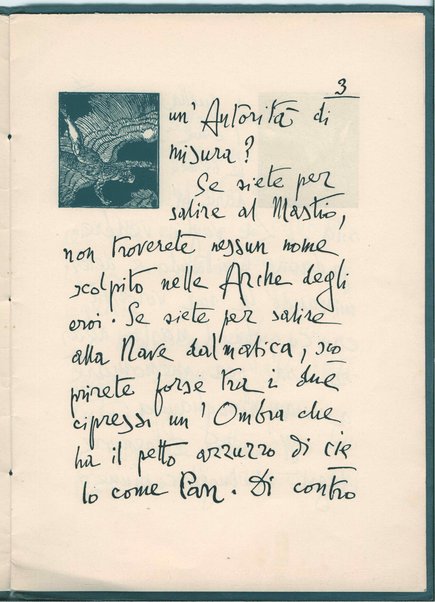 3
un' Autorità di
misura?
Se siete per
salire al Mastio,
non troverete nessun nome
scolpito nelle Arche degli
eroi. Se siete per salire
alla Nave dalmatica, sco
prirete forse tra i due
cipressi un' Ombra che
ha il petto azzurro di cie
lo come Pan. Di contro